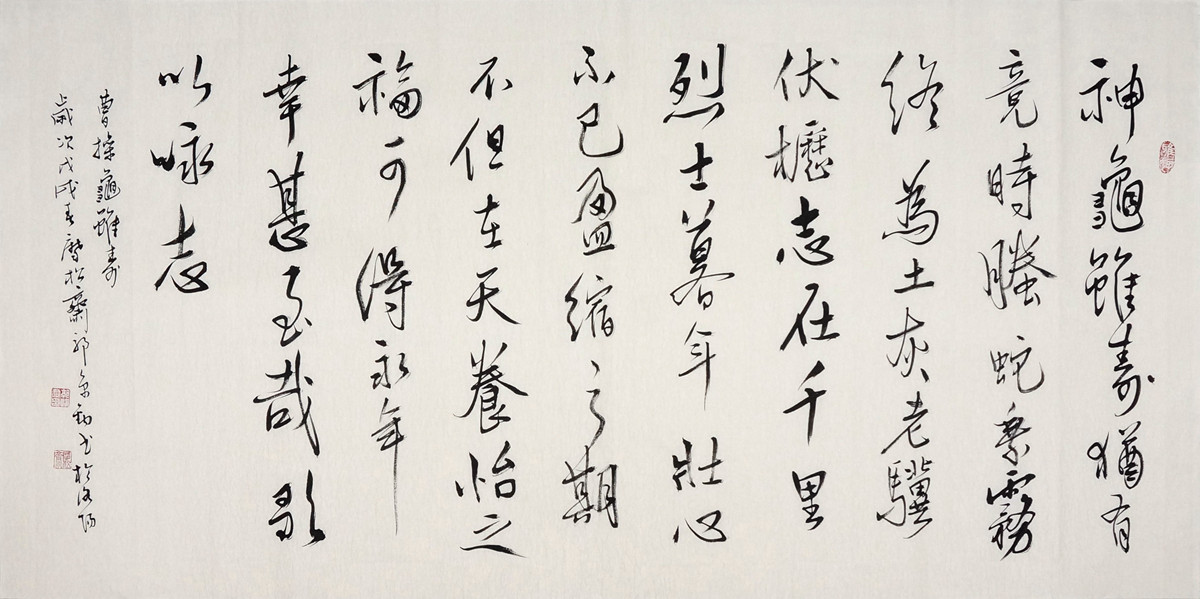 神龜雖壽猶有
竟時騰蛇乘霧
終為土灰老驥
伏櫪志在千里
烈士暮年壯心
不已盈縮之期
不但在天養怡之
福可得永年
幸甚至哉歌
以咏志
曹操龜雖壽
歲次戊戌春磨松齋郭京勤书於洛陽